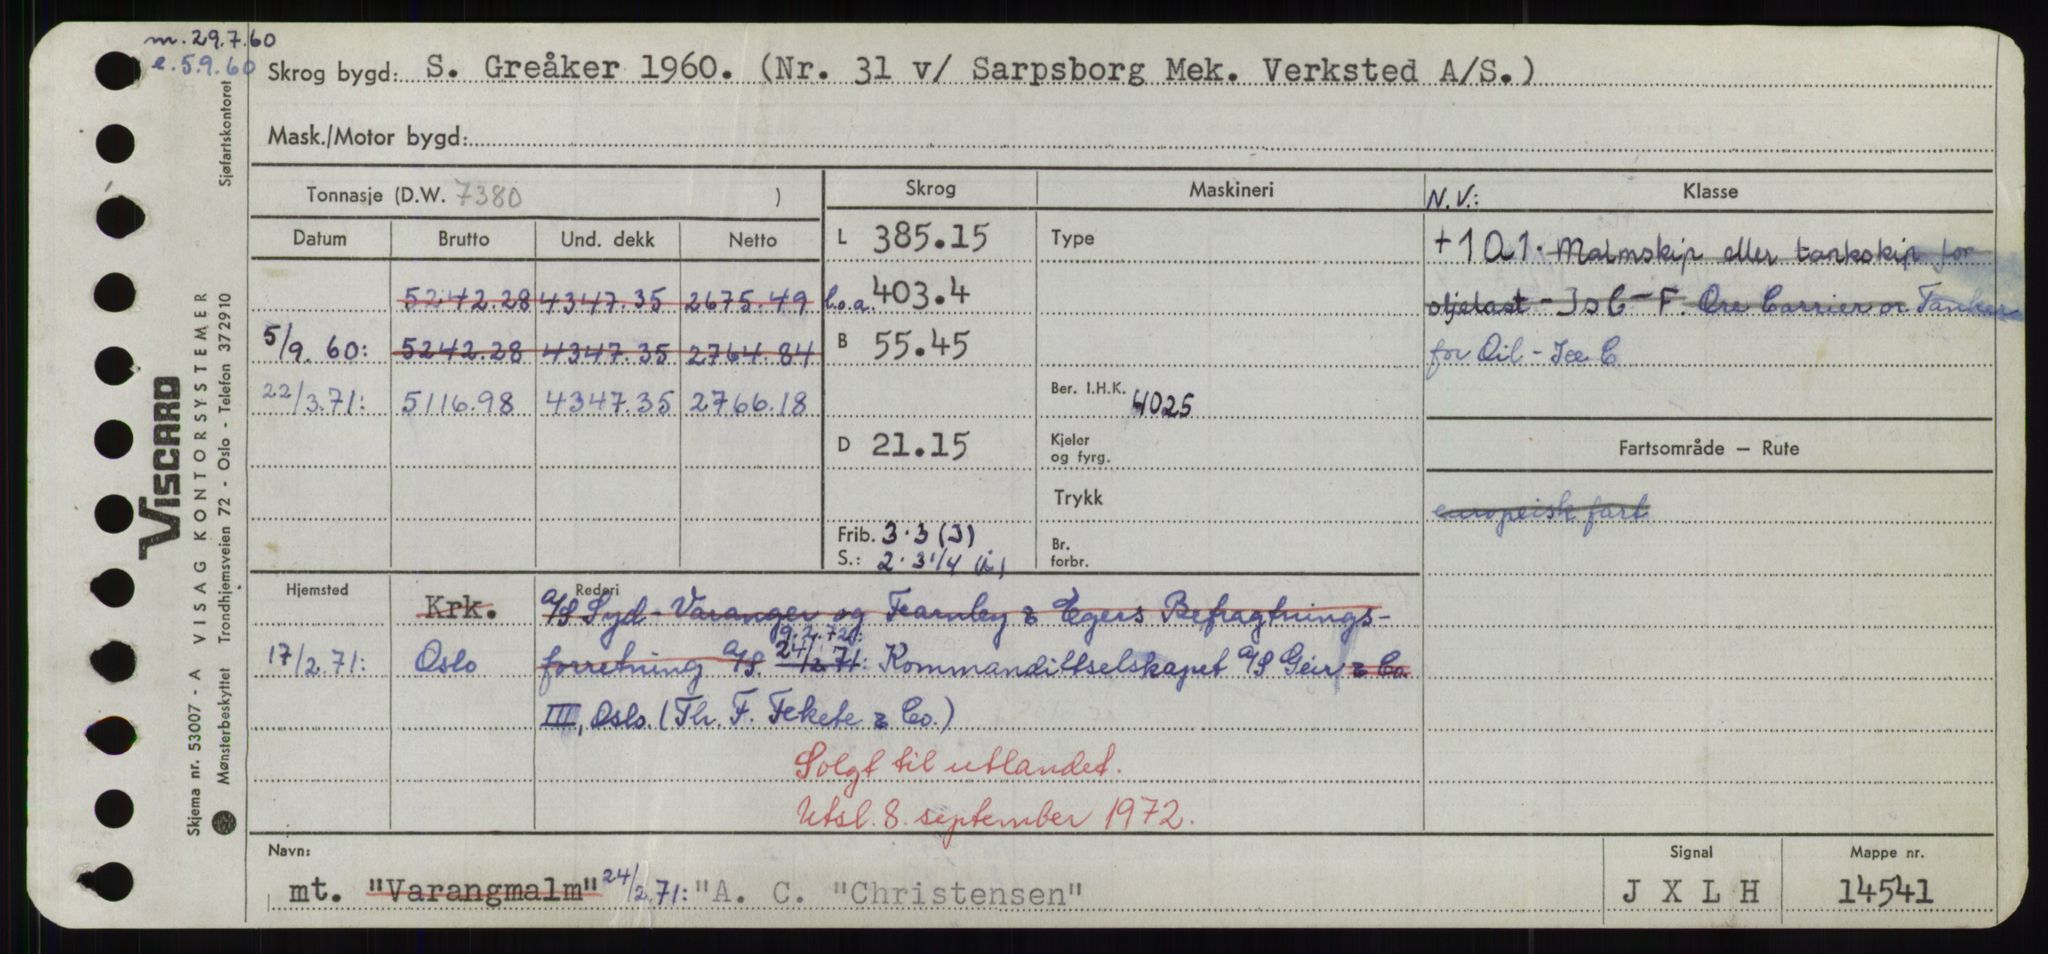 m. 29.7.60
e. 5.9.60
Skrog bygd: S. Greåker 1960. (Nr. 31 v/ Sarpsborg Mek. Verksted A/S.)
Mask./Motor bygd:
Tonnasje (D.W. 7380 )
Datum Brutto Und. dekk Netto
5242.28 4347.35 2675.49
5/9.60: 5242.28 4347.35 2764.84
22/3.71: 5116.98 4347.35 2766.18
Skrog
L 385.15
l.o.a. 403.4
B 55.45
D 21.15
Frib. 3.3 (J)
S.: 2.3 1/4
Maskineri
Type
Ber. I.H.K. 4025
Kjeler
og fyrg.
Trykk
Br.
forbr.
N.V.: Klasse
+1A1. Malmskip eller tankskip for
oljelast - Is C - F. Ore Carrier or Tanker
for Oil - Ice C
Fartsområde – Rute
europeisk fart
Hjemsted
Krk.
17/2.71: Oslo
Rederi
A/S Syd-Varanger og Fearnley & Egers Befragtnings-
9.2.72:
forretning A/S. 24/2.71: Kommandittselskapet A/S Geir & Co.
III, Oslo. (Th. F. Fekete & Co.)
Solgt til utlandet.
Utsl. 8. september 1972.
Navn:
mt. "Varangmalm" 24/2.71: "A. C. "Christensen"
Signal
J X L H
Mappe nr.
14541
VISCARD
Skjema nr. 53007 - A VISAG KONTORSYSTEMER
Mønsterbeskyttet Trondhjemsveien 72 - Oslo - Telefon 372910 Sjøfartskontoret